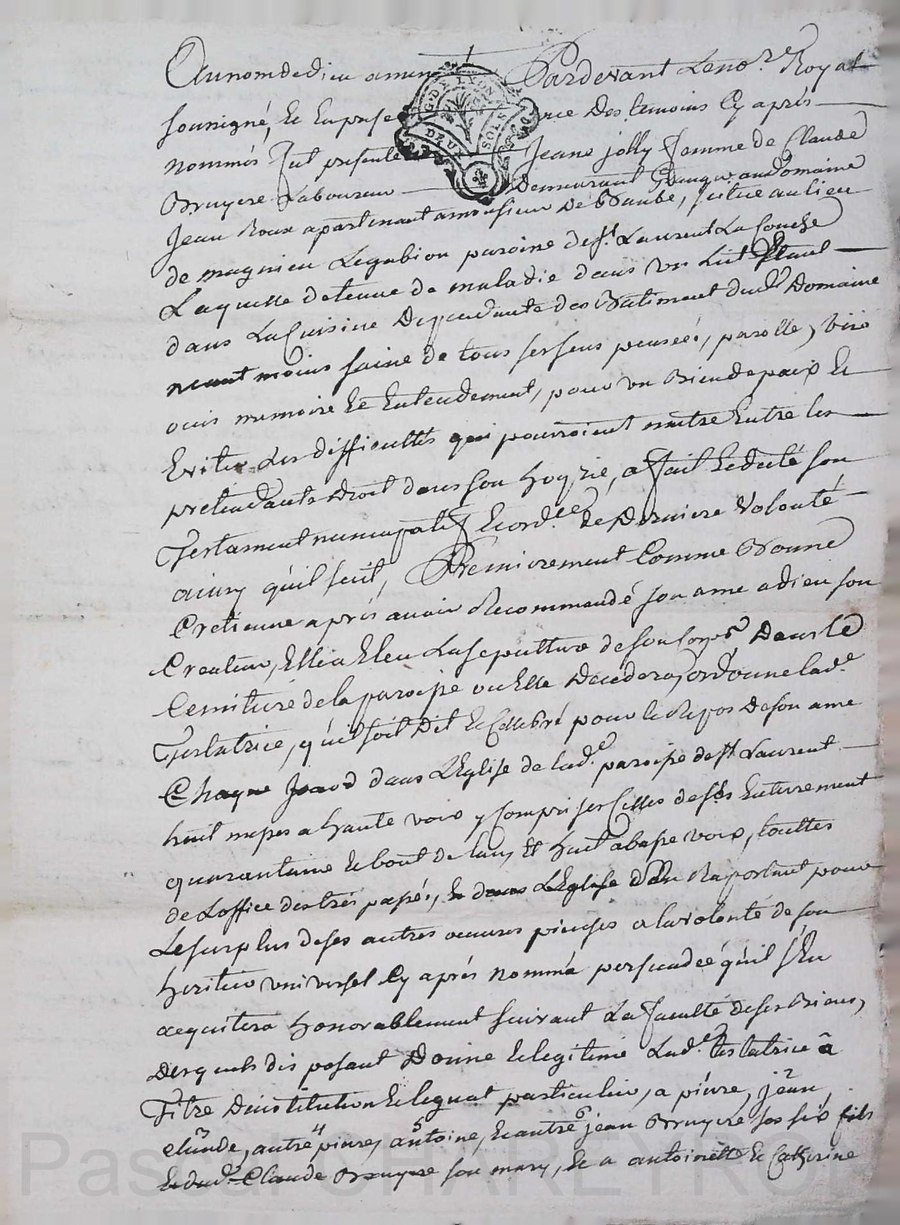 Au nom de dieu amen Pardevant Le no.re Royal
soussigné, et En presence Des temoins Cy après
G. DE LYON
DEUX SOLS
nommés fut presente Jeane jolly femme de Claude
Bruyere Laboureur Demeurant Grangé au Domaine
Jean Roux apartenant a monsieur De Baube, scitué au lieu
de magnieu Legabion paroisse de st. Laurent La Conche
Laquelle detenue de maladie dans un Lit Etant
dans La Cuisine Dependante des Batiment dud. Domaine
neant moins saine de tous ses sens pensées, parolle, vüe
ouie memoire Et Entendement, pour un Bien de paix Et
Eviter Les difficultés qui pourroient naitre Entre les
pretendants Droit dans son hoyrie, a fait Et dicté son
Testament nuncupatif Et ord.ce De Derniere Volonté
ainsy qu'il suit, Premierement Comme Bonne
Cretienne après avoir Recommandé son ame a dieu son
Createur, Elle a Eleu La sepulture de son Corps Dans Le
Cemitiere de la paroisse ou Elle Decedera, ordonne lad.e
Testatrice, qu'il soit Dit Et Celebré pour le Repos De son ame
dans L'Eglise de lad.e paroisse de st. Laurent
huit messes a haute voix y Compris Celles de ses Enterrement
quarantaine Et bout de l'an, Et huit a basse voix, touttes
de L'office des trépassés, Se Raportant pour
Le surplus de ses autres oeuvres pieuses a la volonté de son
heritier universel Cy après nommé persuadée qu'il s'En
acquitera honorablement suivant La faculté de ses Biens,
Desquels disposant Donne Et legue Lad.e testatrice a
Titre D'institution Et legat particulier, a pierre, jean,
claude, autre pierre, antoine, Et autre jean Bruyere ses six fils
Et dud. Claude Bruyere son mary, Et a antoinette Et Catherine
Pascal CHAREYRON